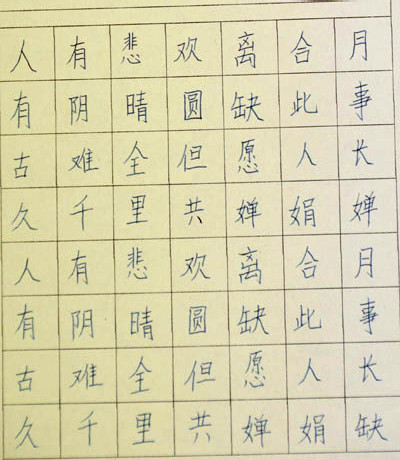 人有悲欢离合月
有阴晴圆缺此事
古难全但愿人长
久千里共婵娟婵
人有悲欢离合月
有阴晴圆缺此事
古难全但愿人长
久千里共婵娟缺